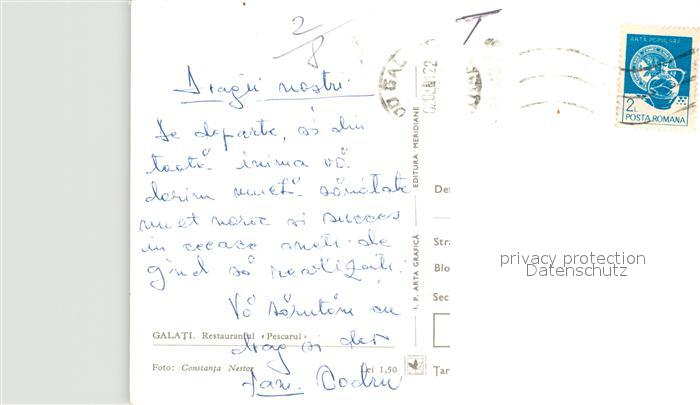 2/8
T
Dragii noștri
De departe, și din
toată inima vă
dorim multă sănătate
mult noroc și succes
în ceeace aveți de
gînd să realizați.
Vă sărutăm cu
drag și dor
Fam. Codru
GALAȚI. Restaurantul «Pescarul»
Foto: Constanța Nestor
Lei 1,50
I. P. ARTA GRAFICĂ
EDITURA MERIDIANE
ARTA POPULARA
2L
POSTA ROMANA
De
Stra
Blo
Sec
Țar
privacy protection
Datenschutz